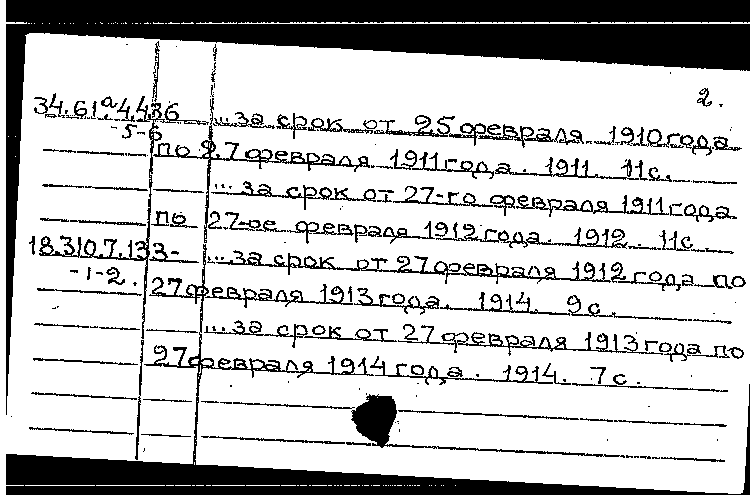 2.
34.61а.4.436 ...за срок от 25 февраля 1910 года
-5-6
по 27 февраля 1911 года. 1911. 11с.
...за срок от 27-го февраля 1911 года
по 27-ое февраля 1912 года. 1912. 11с.
18.310.7.133- ...за срок от 27 февраля 1912 года по
-1-2. 27 февраля 1913 года. 1914. 9с.
...за срок от 27 февраля 1913 года по
27 февраля 1914 года. 1914. 7с.